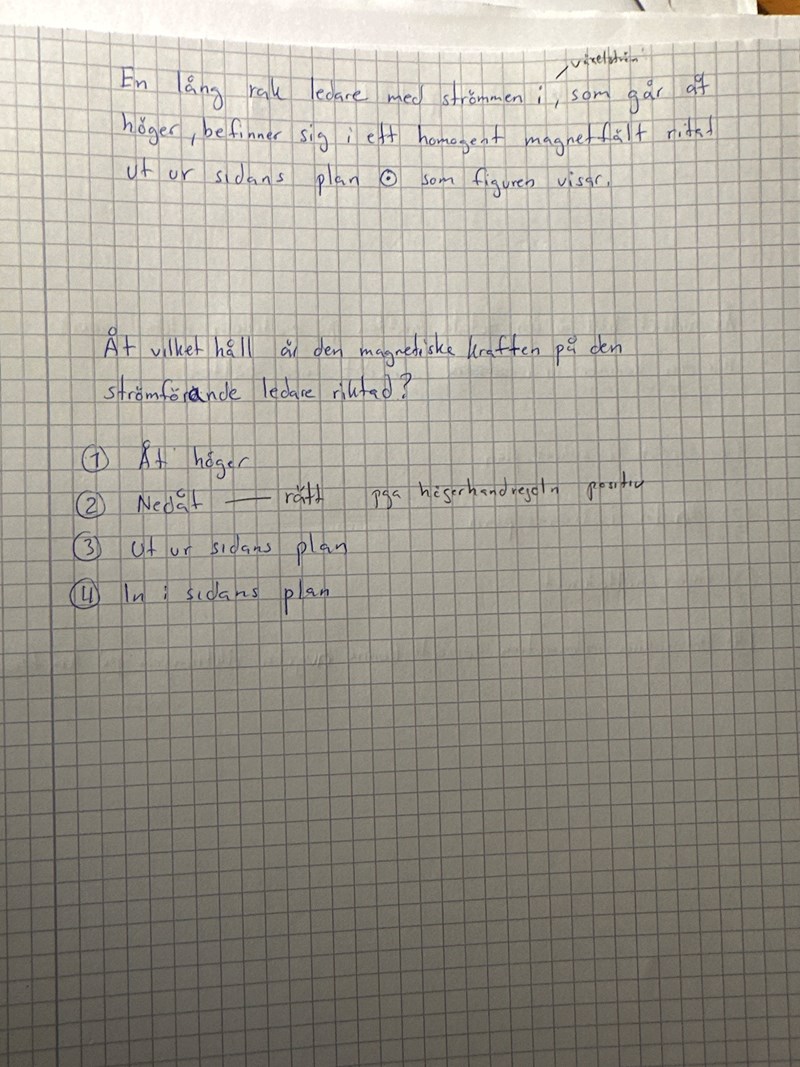 växelström
En lång rak ledare med strömmen i, som går åt
höger, befinner sig i ett homogent magnetfält ritat
ut ur sidans plan ⊙ som figuren visar.
Åt vilket håll är den magnetiske kraften på den
strömförande ledare riktad?
① Åt höger
② Nedåt — rätt pga högerhandregeln positiv
③ Ut ur sidans plan
④ In i sidans plan